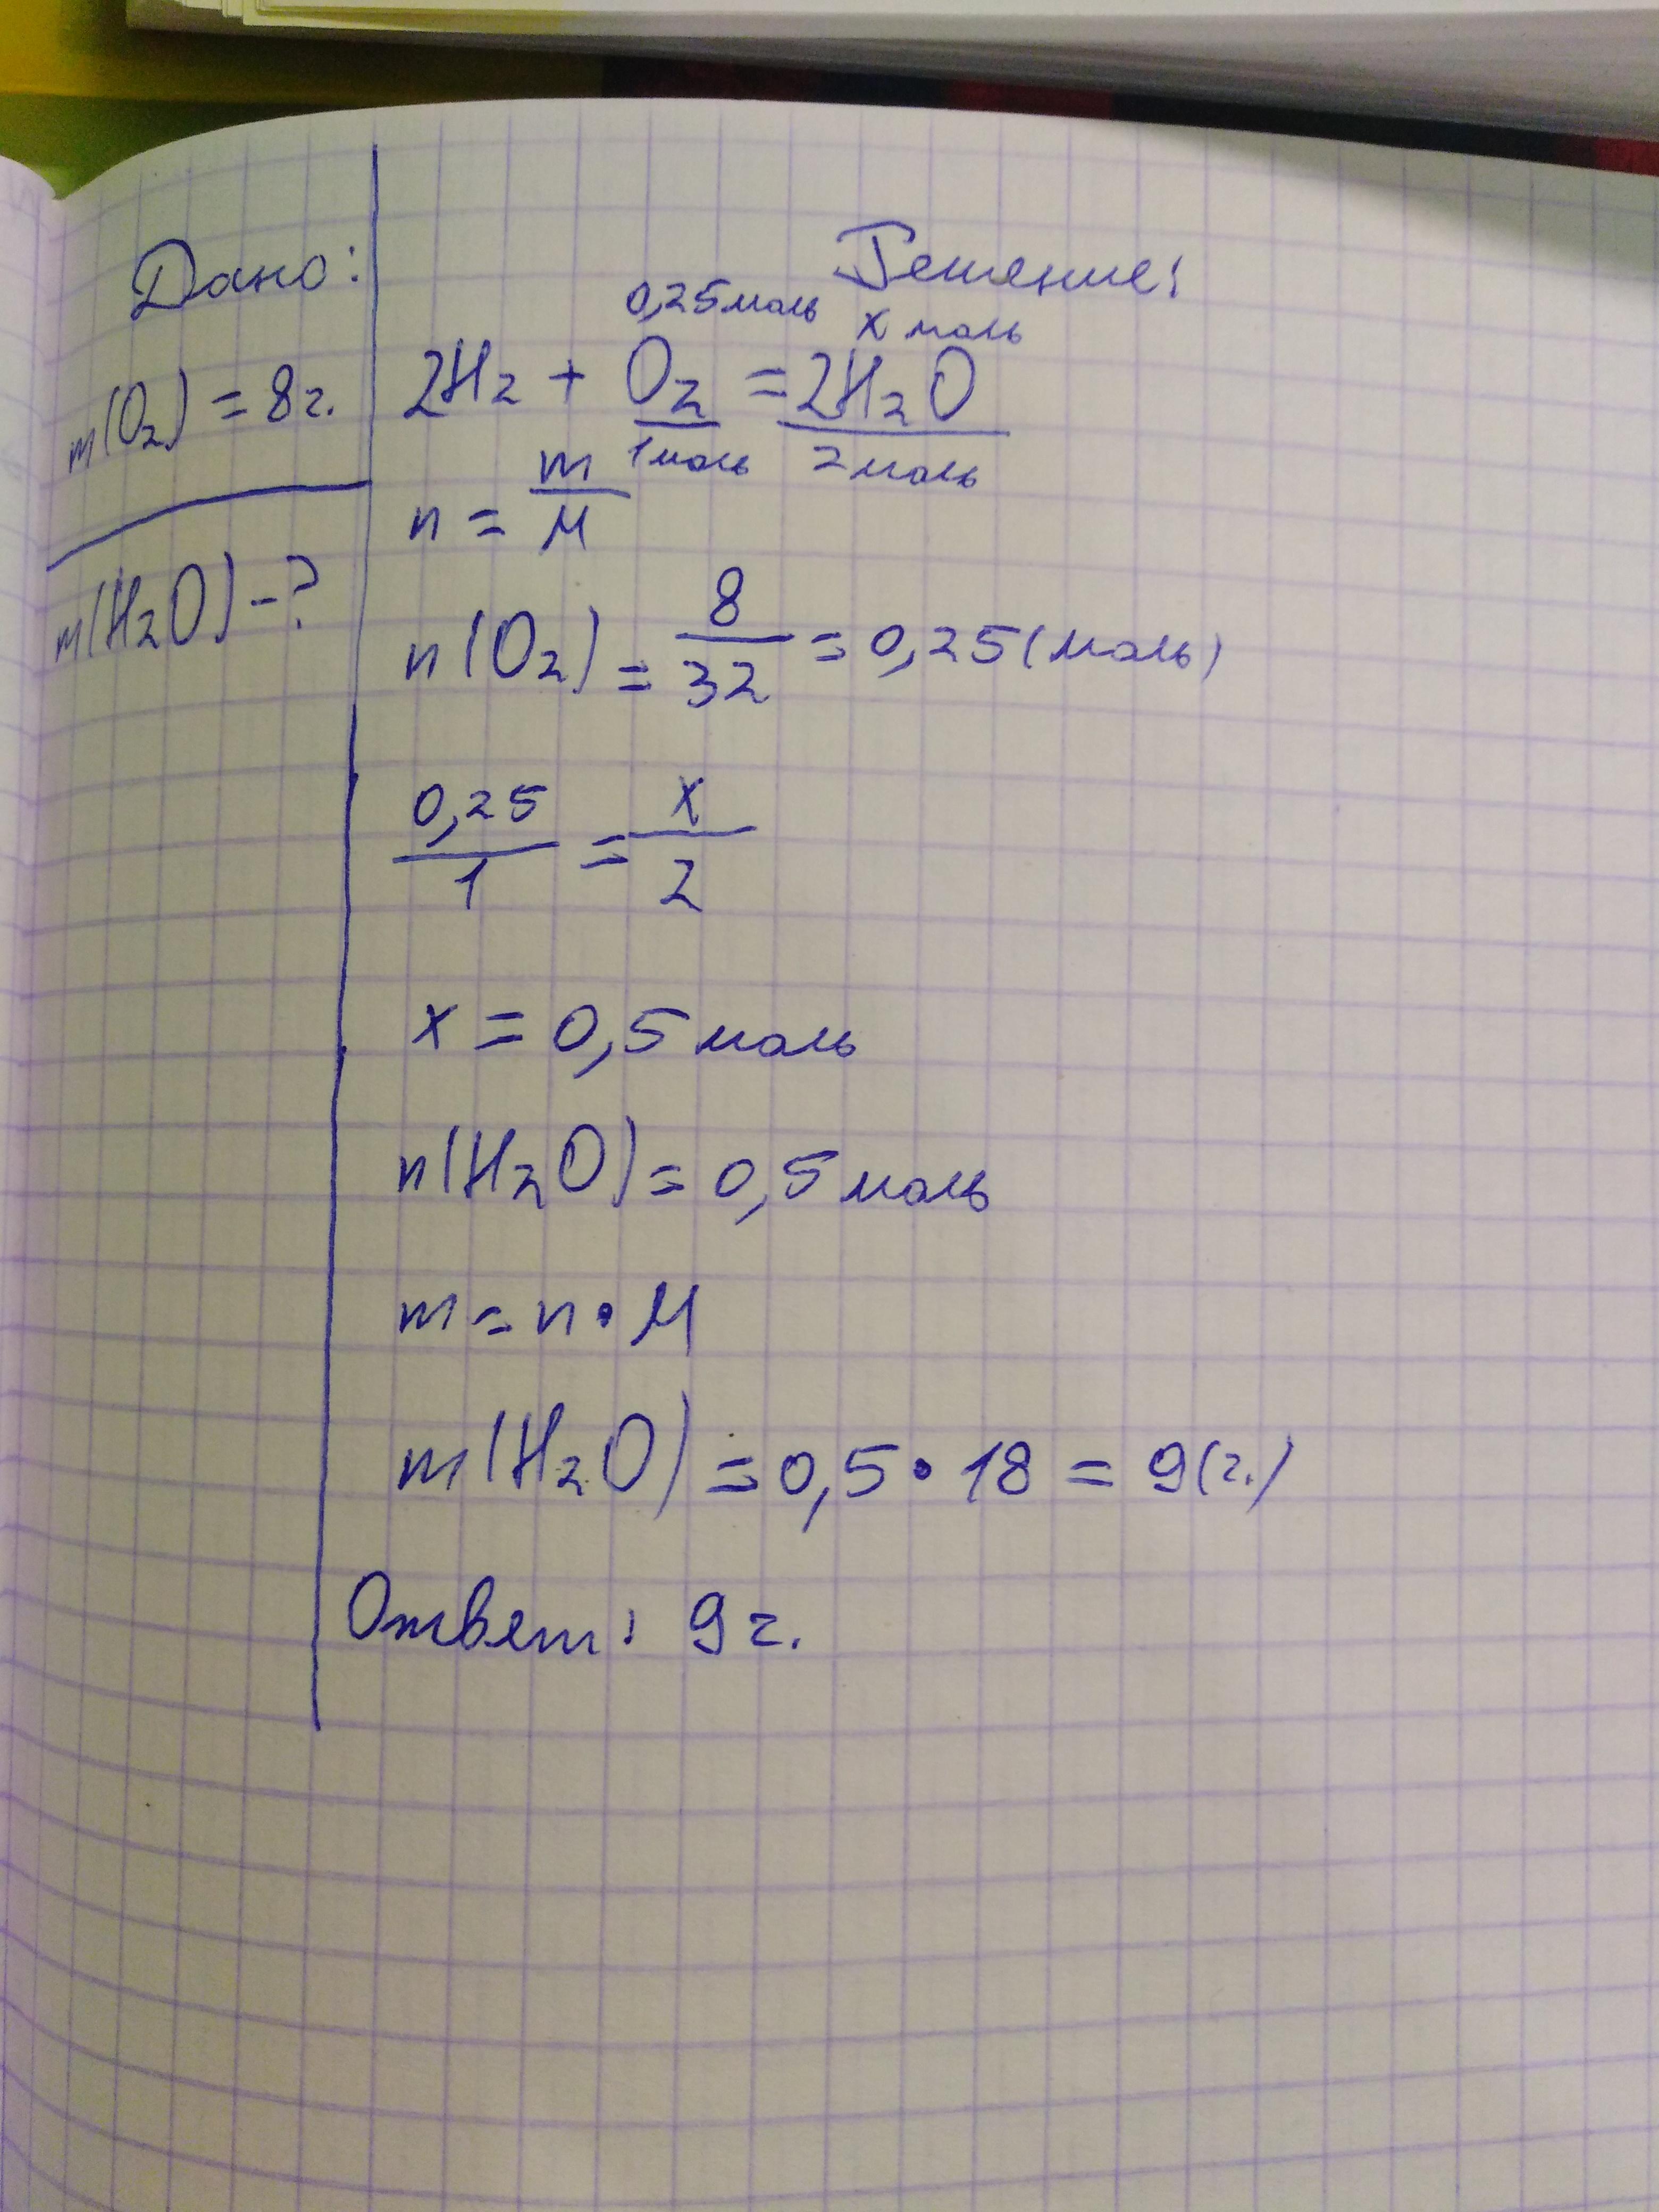 Дано:
m(O₂) = 8г.
m(H₂O) - ?
Решение:
0,25 моль x моль
2H₂ + O₂ = 2H₂O
1 моль 2 моль
n = m/M
n(O₂) = 8/32 = 0,25 (моль)
0,25/1 = x/2
x = 0,5 моль
n(H₂O) = 0,5 моль
m = n • M
m(H₂O) = 0,5 • 18 = 9 (г.)
Ответ: 9 г.